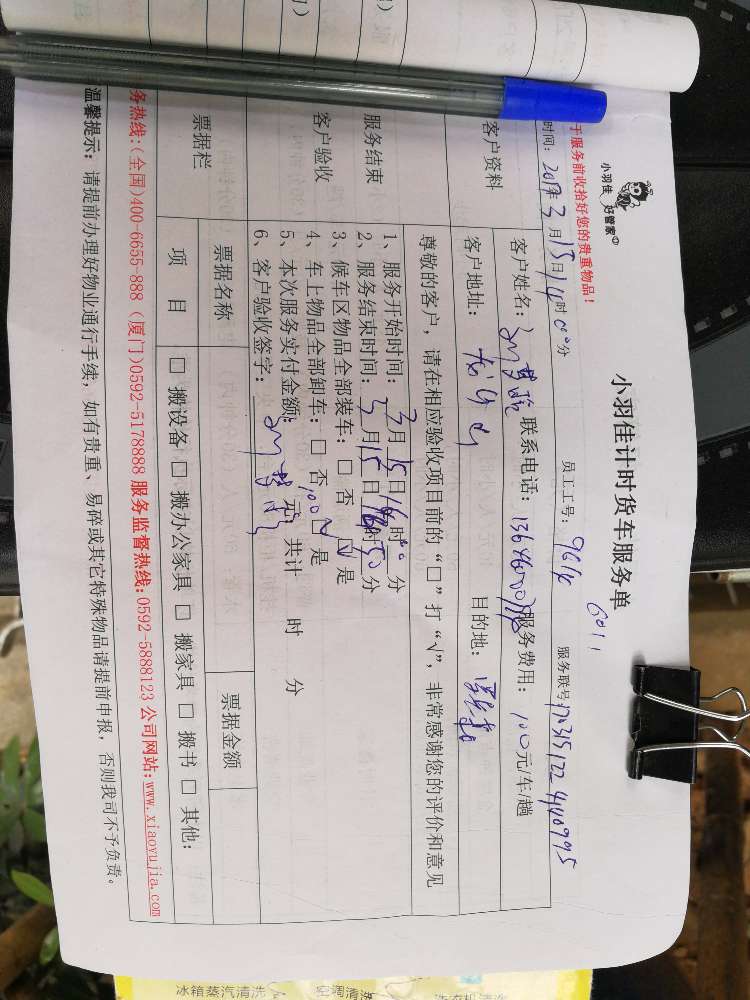 小羽佳 好管家
小羽佳计时货车服务单
6011
于服务前收拾好您的贵重物品！
时间：2019年3月15日14时00分 员工工号：9614 服务联号
客户资料
客户姓名： 联系电话： 服务费用：100元/车/趟
客户地址： 目的地：
尊敬的客户，请在相应验收项目前的“□”打“√”，非常感谢您的评价和意见
服务结束
客户验收
1、服务开始时间：3月15日 时 分
2、服务结束时间：3月15日 时50分
3、候车区物品全部装车：□ 否 √ 是
4、车上物品全部卸车：□ 否 □ 是
5、本次服务实付金额：100元；共计 时 分
6、客户验收签字：
票据栏
票据名称 票据金额
项 目 □ 搬设备 □ 搬办公家具 □ 搬家具 □ 搬书 □ 其他：
务热线：(全国)400-6655-888 (厦门)0592-5178888 服务监督热线：0592-5888123 公司网站：www.xiaoyujia.com
温馨提示：请提前办理好物业通行手续，如有贵重、易碎或其它特殊物品请提前申报，否则我司不予负责。
冰箱蒸汽清洗 空调清洗 洗衣机清洗